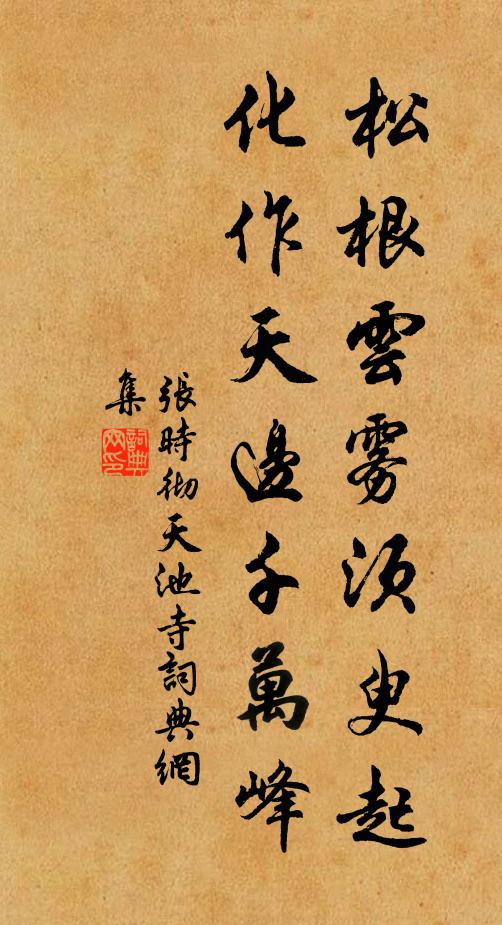 松根雲雾須臾起
化作天邊千萬峰
張時彻天池寺詞典網
集
詞典
网印